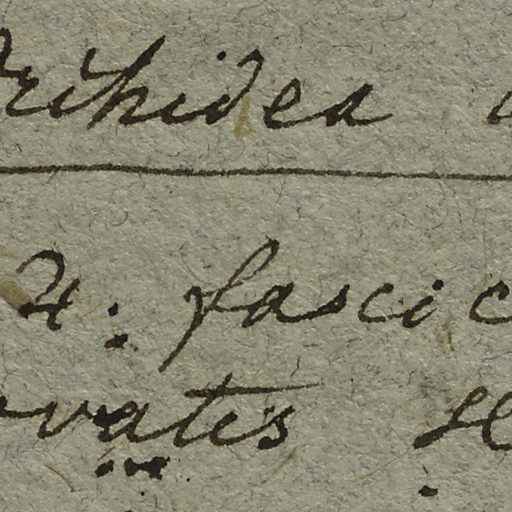 Orchidea
4. fascic
vatis se